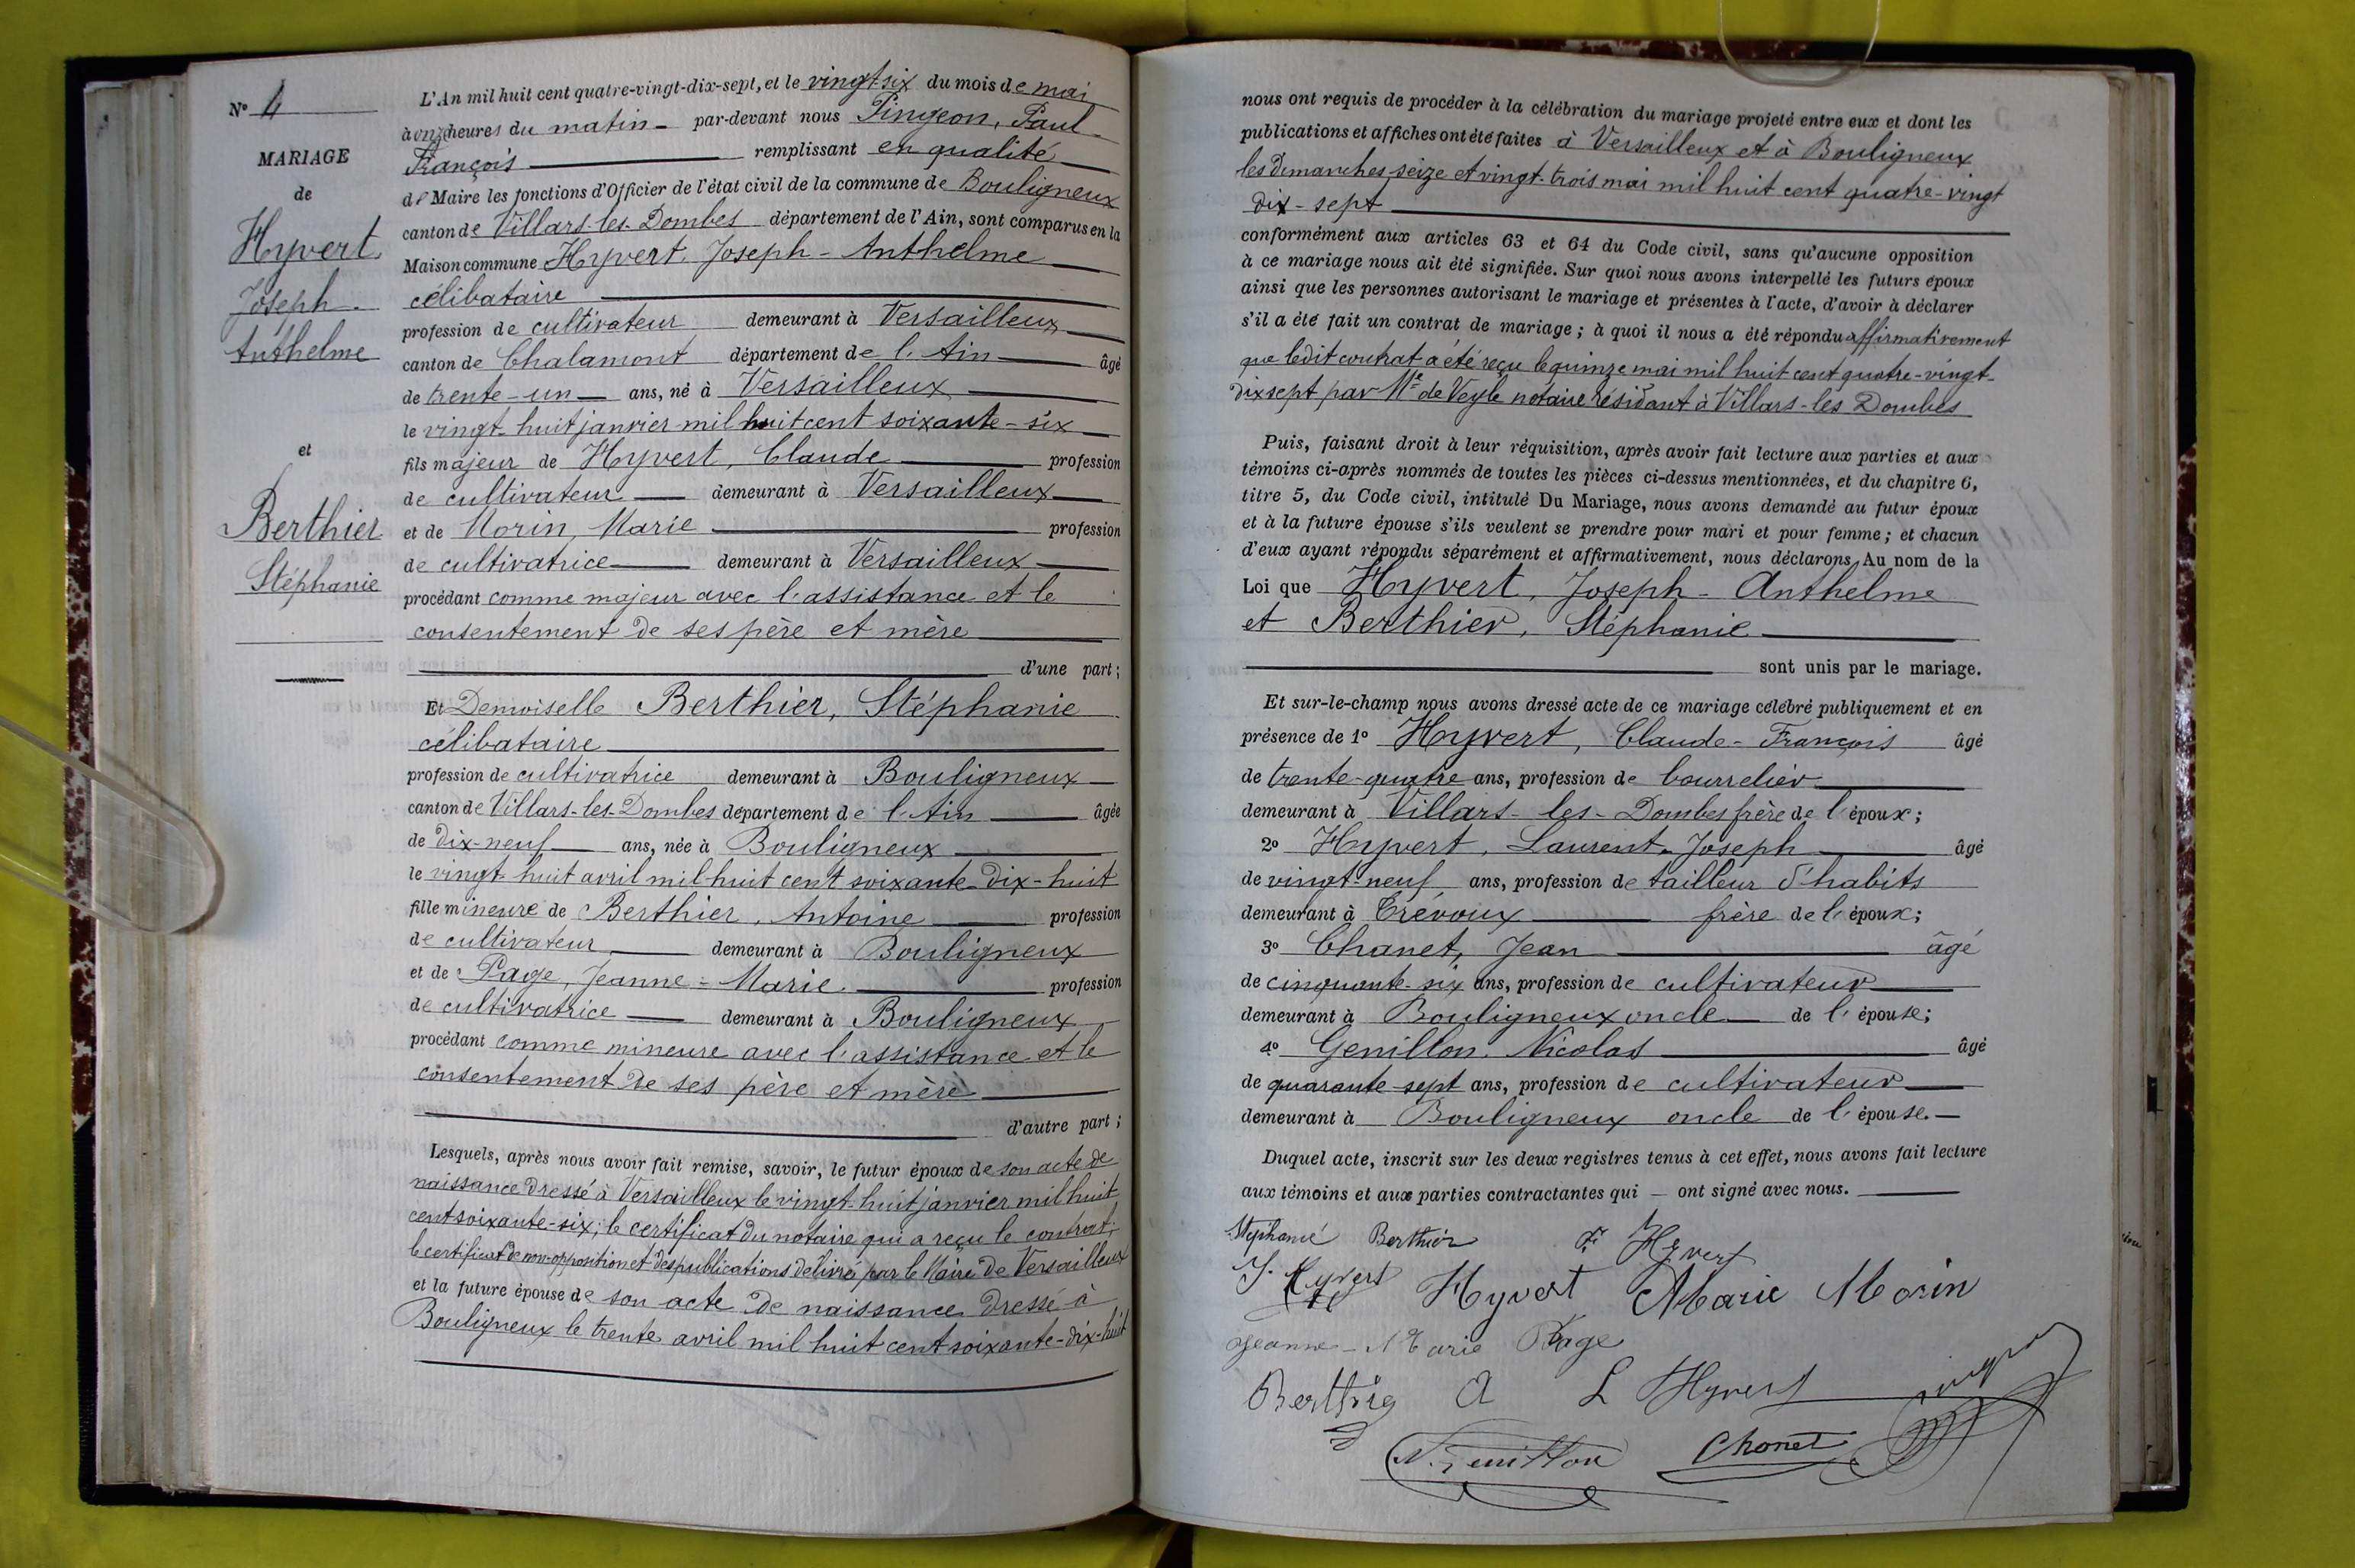 N° 4
MARIAGE
de
Hyvert,
Joseph-
Anthelme
et
Berthier
Stéphanie
L'An mil huit cent quatre-vingt-dix-sept, et le vingt-six du mois de mai
à onze heures du matin - par-devant nous Pingeon, Paul-
François remplissant en qualité
de Maire les fonctions d'Officier de l'état civil de la commune de Bouligneux
canton de Villars-les-Dombes département de l'Ain, sont comparus en la
Maison commune Hyvert, Joseph-Anthelme
célibataire
profession de cultivateur demeurant à Versailleux
canton de Chalamont département de l'Ain âgé
de trente-un ans, né à Versailleux
le vingt-huit janvier mil huit cent soixante-six
fils majeur de Hyvert, Claude profession
de cultivateur demeurant à Versailleux
et de Morin, Marie profession
de cultivatrice demeurant à Versailleux
procédant comme majeur avec l'assistance et le
consentement de ses père et mère
d'une part;
Et Demoiselle Berthier, Stéphanie
célibataire
profession de cultivatrice demeurant à Bouligneux
canton de Villars-les-Dombes département de l'Ain âgée
de dix-neuf ans, née à Bouligneux
le vingt-huit avril mil huit cent soixante-dix-huit
fille mineure de Berthier, Antoine profession
de cultivateur demeurant à Bouligneux
et de Page, Jeanne-Marie profession
de cultivatrice demeurant à Bouligneux
procédant comme mineure avec l'assistance et le
consentement de ses père et mère
d'autre part;
Lesquels, après nous avoir fait remise, savoir, le futur époux de son acte de
naissance dressé à Versailleux le vingt-huit janvier mil huit
cent soixante-six; le certificat du notaire qui a reçu le contrat;
le certificat de non-opposition et des publications délivré par le Maire de Versailleux
et la future épouse de son acte de naissance dressé à
Bouligneux le trente avril mil huit cent soixante-dix-huit
nous ont requis de procéder à la célébration du mariage projeté entre eux et dont les
publications et affiches ont été faites à Versailleux et à Bouligneux
les dimanches seize et vingt-trois mai mil huit cent quatre-vingt
dix-sept
conformément aux articles 63 et 64 du Code civil, sans qu'aucune opposition
à ce mariage nous ait été signifiée. Sur quoi nous avons interpellé les futurs époux
ainsi que les personnes autorisant le mariage et présentes à l'acte, d'avoir à déclarer
s'il a été fait un contrat de mariage; à quoi il nous a été répondu affirmativement
que ledit contrat a été reçu le quinze mai mil huit cent quatre-vingt-
dix sept par Me de Veyle notaire résidant à Villars-les Dombes
Puis, faisant droit à leur réquisition, après avoir fait lecture aux parties et aux
témoins ci-après nommés de toutes les pièces ci-dessus mentionnées, et du chapitre 6,
titre 5, du Code civil, intitulé Du Mariage, nous avons demandé au futur époux
et à la future épouse s'ils veulent se prendre pour mari et pour femme; et chacun
d'eux ayant répondu séparément et affirmativement, nous déclarons, Au nom de la
Loi que Hyvert, Joseph-Anthelme
et Berthier, Stéphanie
sont unis par le mariage.
Et sur-le-champ nous avons dressé acte de ce mariage célébré publiquement et en
présence de 1° Hyvert, Claude-François âgé
de trente-quatre ans, profession de bourrelier
demeurant à Villars-les-Dombes frère de l'époux;
2° Hyvert, Laurent-Joseph âgé
de vingt-neuf ans, profession de tailleur d'habits
demeurant à Trévoux frère de l'époux;
3° Chanet, Jean âgé
de cinquante-six ans, profession de cultivateur
demeurant à Bouligneux oncle de l'épouse;
4° Genillon, Nicolas âgé
de quarante-sept ans, profession de cultivateur
demeurant à Bouligneux oncle de l'épouse.
Duquel acte, inscrit sur les deux registres tenus à cet effet, nous avons fait lecture
aux témoins et aux parties contractantes qui - ont signé avec nous.
Stephanie Berthier F Hyvert
J. Hyvert Hyvert Marie Morin
Jeanne-Marie Page
Berthier A L Hyvert
N. Genillon Chanet